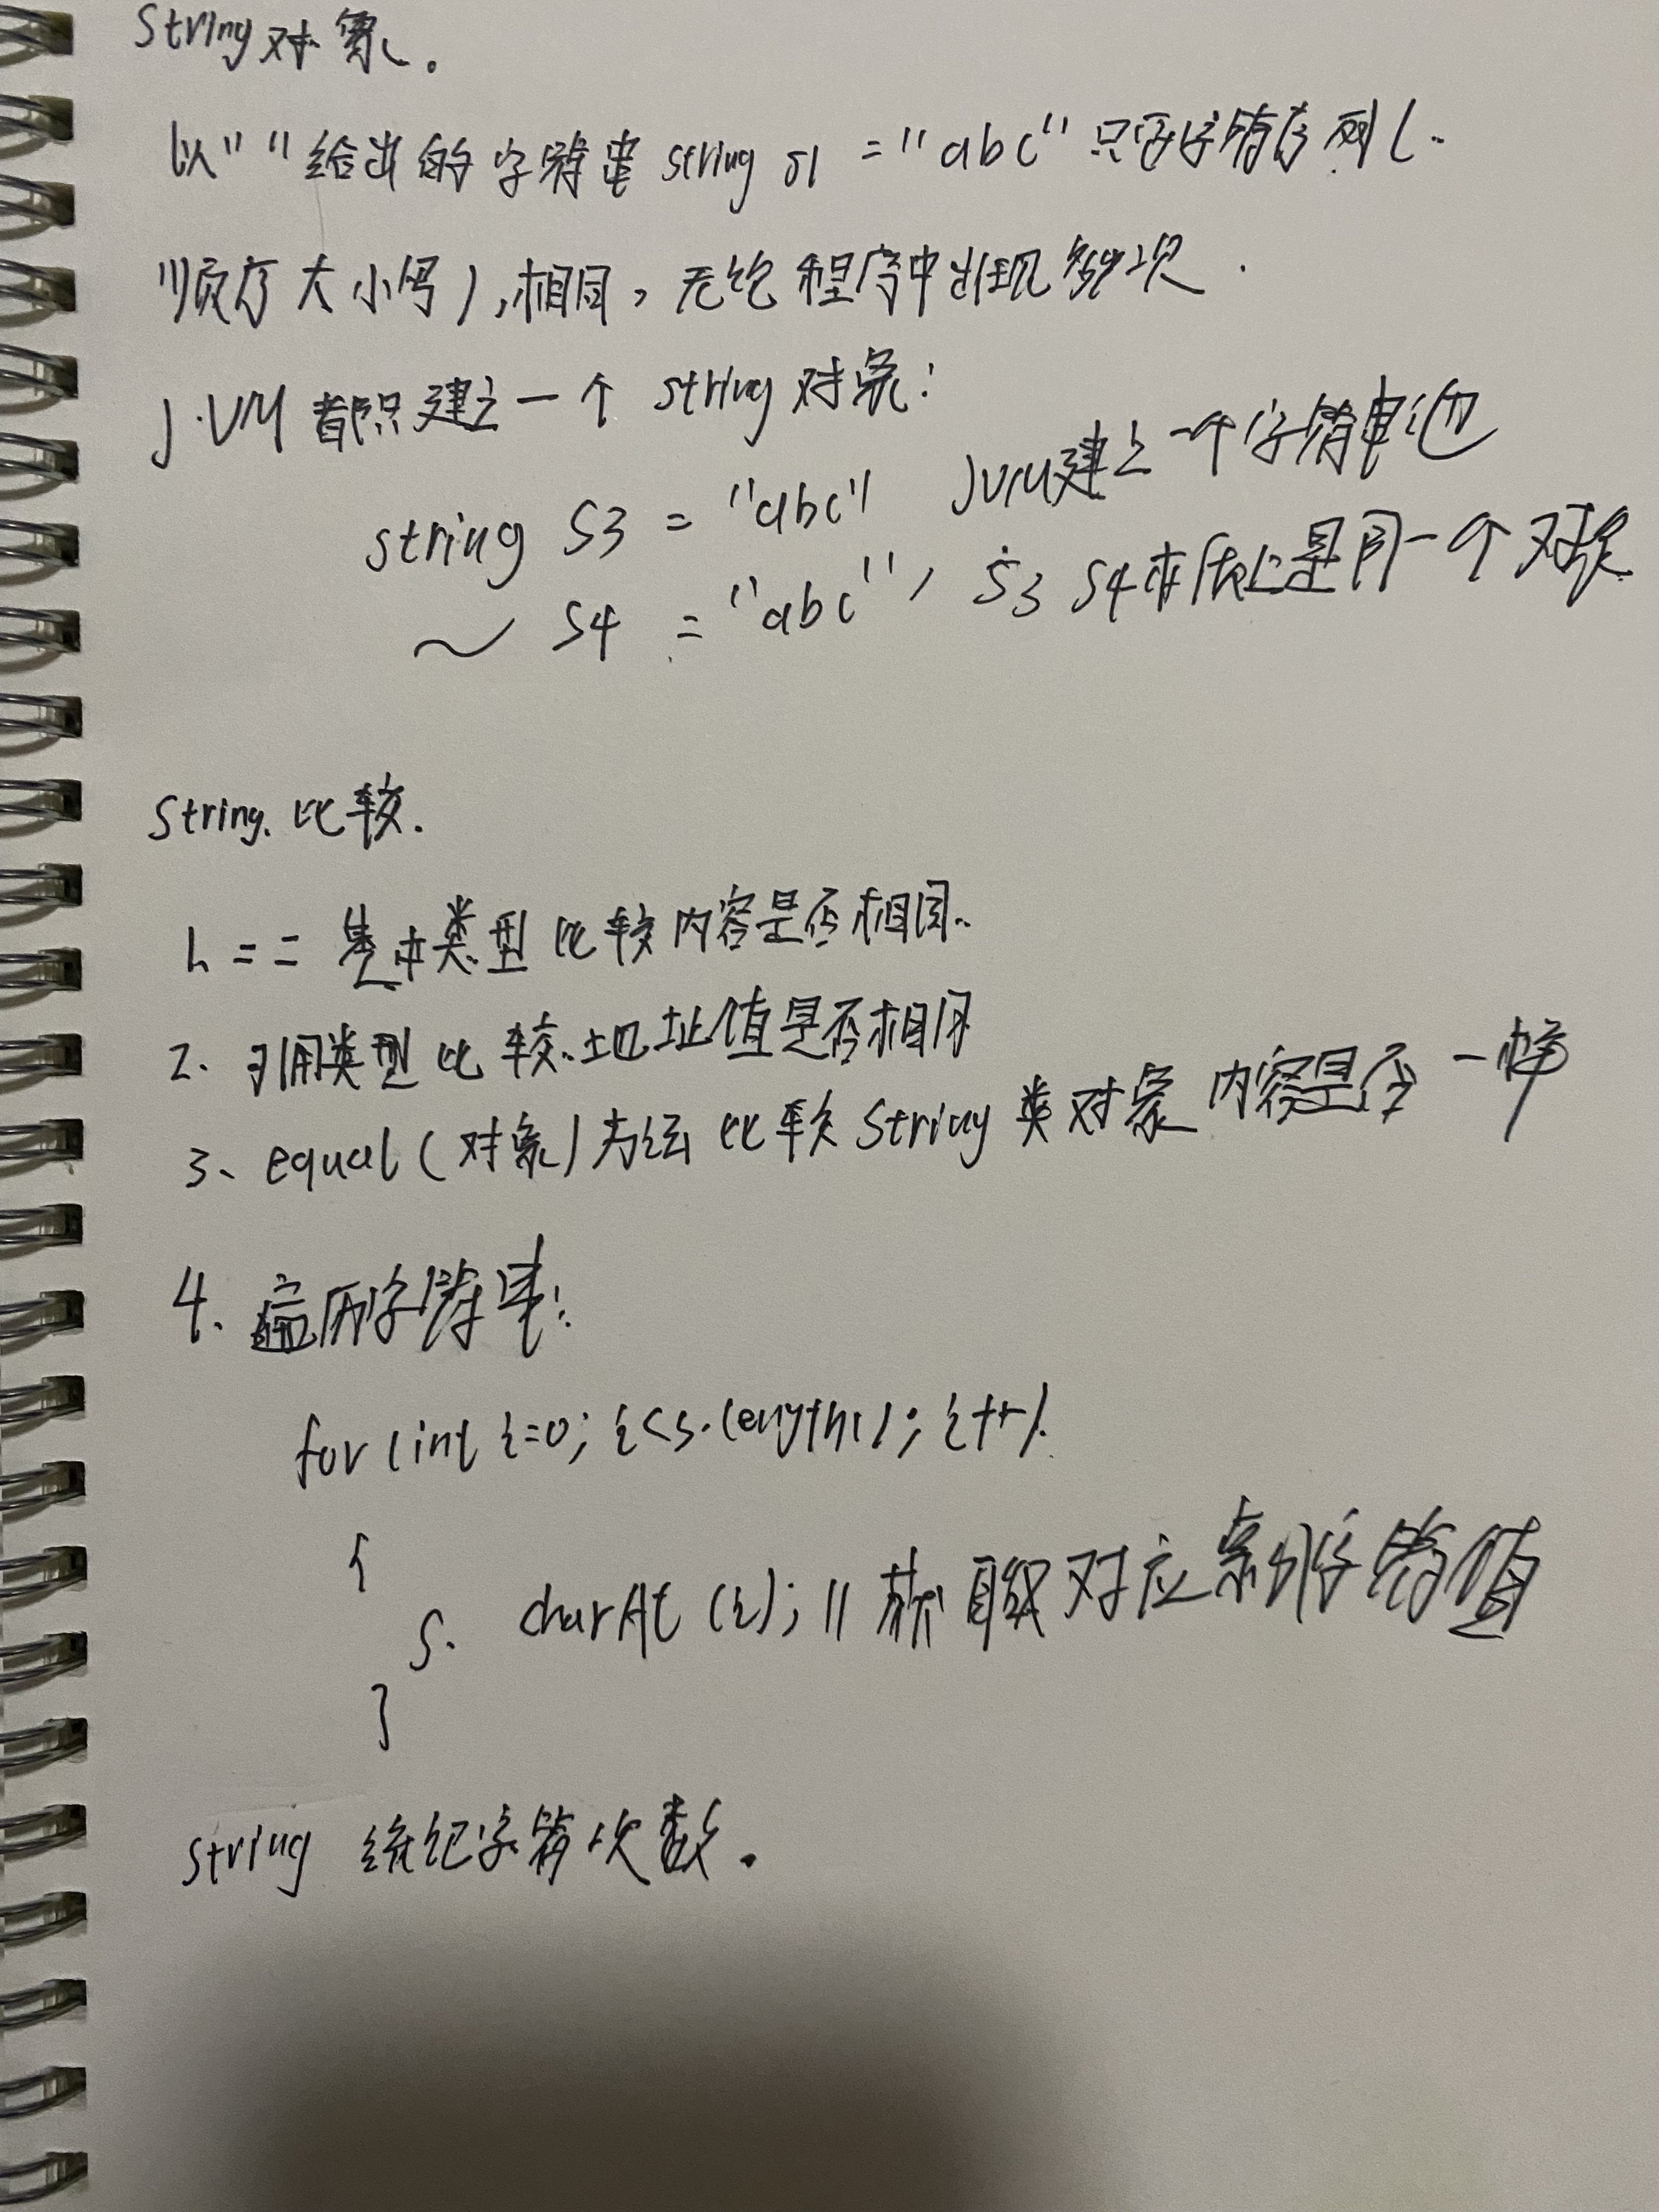 String对象.
以" "给出的字符串 string s1 = "abc" 只要字符序列(
顺序大小写),相同,无论程序中出现多少次.
JVM都只建立一个 string 对象:
string S3 = "abc" JVM建立一个字符串池
~ S4 = "abc", S3 S4本质上是同一个对象
String. 比较.
1. == 基本类型比较内容是否相同.
2. 引用类型比较地址值是否相同
3、equal(对象)方法比较 String 类对象内容是否一样
4、遍历字符串:
for(int i=0; i<s.length(); i++)
{
s. charAt (i); // 获取对应索引字符值
}
string 统记字符次数.